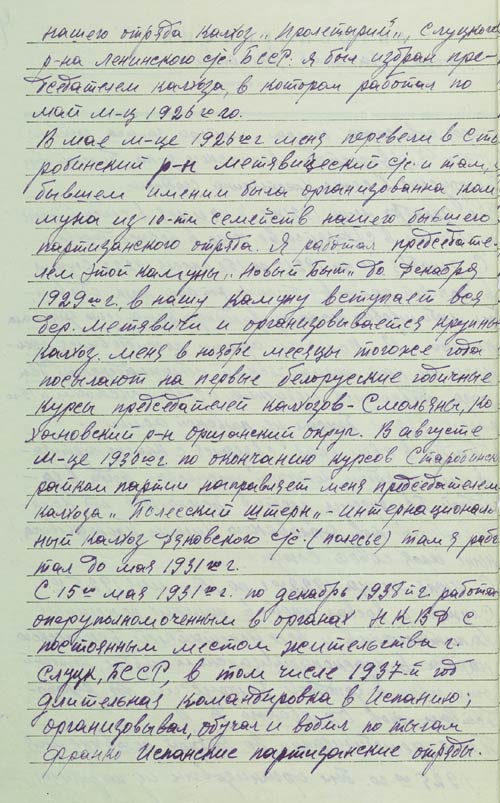 нашего отряда калхоз „Пролетарий", Слуцкого
р-на Ленинского с/с. БССР. Я был избран пре-
дседателем калхоза, в котором работал по
май м-ц 1926 го.
В мае м-це 1926 г меня перевели в Ста
робинский р-н Метявический с/с. и там, в
бывшем имении была организованна ком
муна из 10-ти семейств нашего бывшего
партизанского отряда. Я работал председате-
лем этой камуны „Новый Быт" до декабря
1929 г. в нашу камуну вступает вся
дер. Метявичи и организовывается крупный
калхоз. меня в ноябре месяцы тогоже года
посылают на первые белорусские годичные
курсы председателей калхозов - Смольяны, Ко
хановский р-н оршанский округ. В августе
м-це 1930 г. по окончанию курсов Старобинск
райком партии направляет меня председателем
калхоза „Полесский Штерн" - интернациональ
ный калхоз с/с. (полесье) там я рабо
тал до мая 1931 г.
С 15 мая 1931 г. по декабрь 1938 й г. работал
оперуполномоченным в органах НКВД с
постоянным местом жительства г.
Слуцк, БССР, в том числе 1937-й год
длительная командировка в Испанию;
организовывал, обучал и водил по тылам
франко Испанские партизанские отряды.